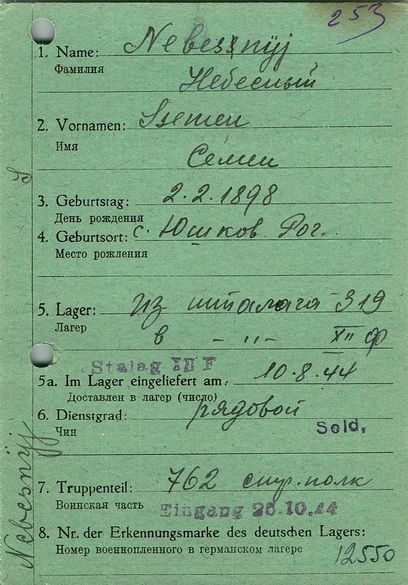 253
1. Name: Nebessnyj
Фамилия
Небесный
2. Vornamen: Ssemen
Имя
Семен
3. Geburtstag: 2.2.1898
День рождения
4. Geburtsort: с. Юшков Рог.
Место рождения
5. Lager: Из шталага 319
Лагер
в - „ - XII Ф
Stalag XII F
5a. Im Lager eingeliefert am: 10.8.44
Доставлен в лагер (число)
6. Dienstgrad: рядовой
Чин
Sold.
7. Truppenteil: 762 стр. полк
Воинская часть
Eingang 25.10.44
8. Nr. der Erkennungsmarke des deutschen Lagers:
Номер военнопленного в германском лагере
12550
Nebessnyj S